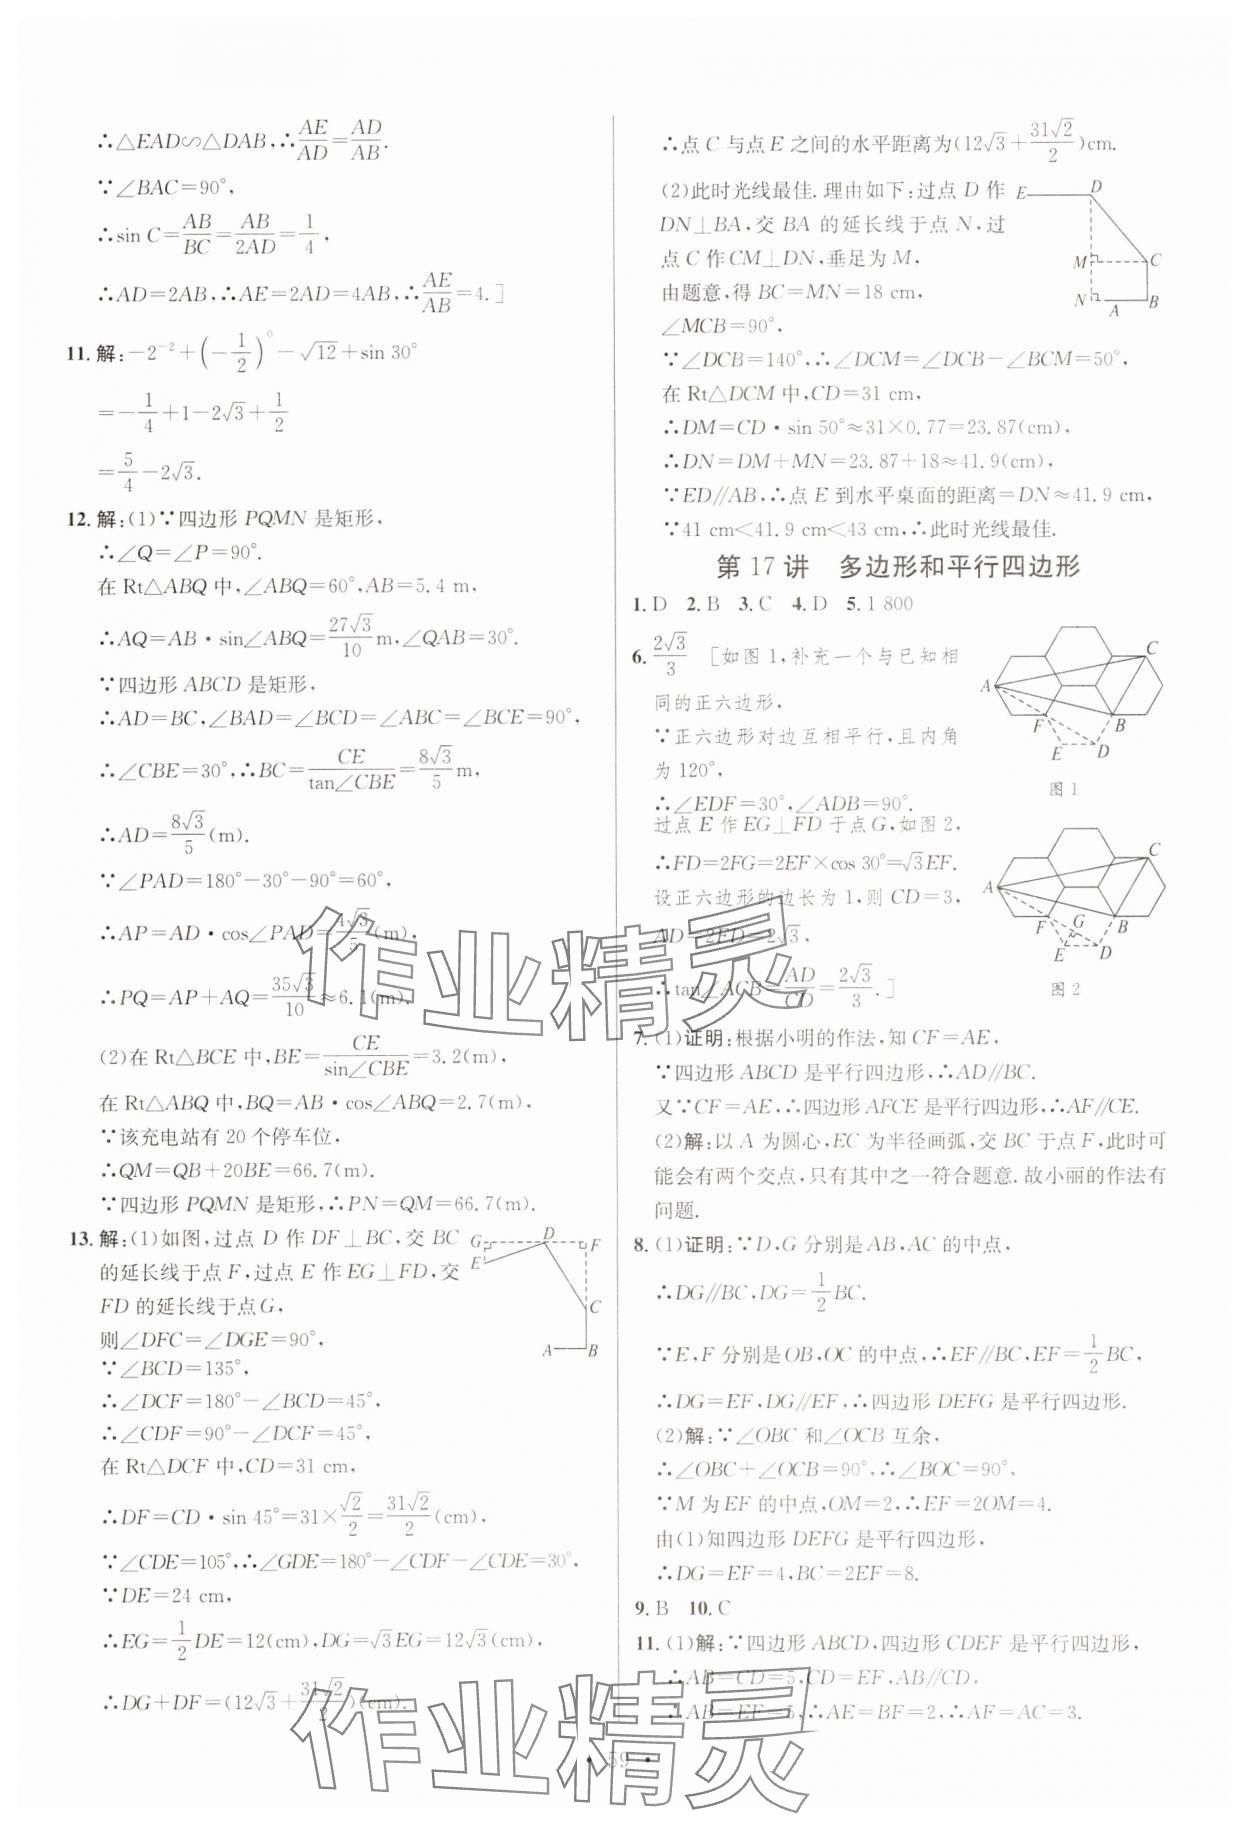 ∴△EAD∽△DAB,∴AE/AD=AD/AB.
∵∠BAC=90°,
∴sin C=AB/BC=AB/2AD=1/4,
∴AD=2AB,∴AE=2AD=4AB,∴AE/AB=4.]
11.解:-2⁻²+(-1/2)⁰-√12+sin 30°
=-1/4+1-2√3+1/2
=5/4-2√3.
12.解:(1)∵四边形 PQMN 是矩形,
∴∠Q=∠P=90°.
在 Rt△ABQ 中,∠ABQ=60°,AB=5.4 m,
∴AQ=AB·sin∠ABQ=27√3/10 m,∠QAB=30°.
∵四边形 ABCD 是矩形,
∴AD=BC,∠BAD=∠BCD=∠ABC=∠BCE=90°,
∴∠CBE=30°,∴BC=CE/tan∠CBE=8√3/5 m,
∴AD=8√3/5(m).
∵∠PAD=180°-30°-90°=60°,
∴AP=AD·cos∠PAD=4√3/5(m),
∴PQ=AP+AQ=35√3/10≈6.1(m).
(2)在 Rt△BCE 中,BE=CE/sin∠CBE=3.2(m),
在 Rt△ABQ 中,BQ=AB·cos∠ABQ=2.7(m),
∵该充电站有 20 个停车位,
∴QM=QB+20BE=66.7(m),
∵四边形 PQMN 是矩形,∴PN=QM=66.7(m).
13.解:(1)如图,过点 D 作 DF⊥BC,交 BC
的延长线于点 F,过点 E 作 EG⊥FD,交
FD 的延长线于点G,
则∠DFC=∠DGE=90°,
∵∠BCD=135°,
∴∠DCF=180°-∠BCD=45°,
∴∠CDF=90°-∠DCF=45°,
在 Rt△DCF 中,CD=31 cm,
∴DF=CD·sin 45°=31×√2/2=31√2/2(cm),
∵∠CDE=105°,∴∠GDE=180°-∠CDF-∠CDE=30°,
∵DE=24 cm,
∴EG=1/2DE=12(cm),DG=√3EG=12√3(cm),
∴DG+DF=(12√3+31√2/2)(cm).
G
D
F
E
C
A
B
∴点 C 与点 E 之间的水平距离为(12√3+31√2/2)cm.
(2)此时光线最佳.理由如下:过点 D 作
DN⊥BA,交 BA 的延长线于点 N,过
点 C 作 CM⊥DN,垂足为 M,
由题意,得 BC=MN=18 cm,
∠MCB=90°,
∵∠DCB=140°,∴∠DCM=∠DCB-∠BCM=50°,
在 Rt△DCM 中,CD=31 cm,
∴DM=CD·sin 50°≈31×0.77=23.87(cm),
∴DN=DM+MN=23.87+18≈41.9(cm),
∵ED∥AB,∴点 E 到水平桌面的距离=DN≈41.9 cm,
∵41 cm<41.9 cm<43 cm,∴此时光线最佳.
E
D
M
C
N
A
B
第 17 讲 多边形和平行四边形
1.D 2.B 3.C 4.D 5.1 800
6.2√3/3 [如图 1,补充一个与已知相
同的正六边形,
∵正六边形对边互相平行,且内角
为 120°,
∴∠EDF=30°,∠ADB=90°.
过点 E 作 EG⊥FD 于点 G,如图 2,
∴FD=2FG=2EF×cos 30°=√3EF.
设正六边形的边长为 1,则 CD=3,
AD=2FD=2√3,
∴tan∠ACB=AD/CD=2√3/3.]
A
C
F
B
E
D
图 1
A
C
F
G
B
E
D
图 2
7.(1)证明:根据小明的作法,知 CF=AE,
∵四边形 ABCD 是平行四边形,∴AD∥BC.
又∵CF=AE,∴四边形 AFCE 是平行四边形,∴AF∥CE.
(2)解:以 A 为圆心,EC 为半径画弧,交 BC 于点 F,此时可
能会有两个交点,只有其中之一符合题意.故小丽的作法有
问题.
8.(1)证明:∵D,G 分别是 AB,AC 的中点,
∴DG∥BC,DG=1/2BC.
∵E,F 分别是 OB,OC 的中点,∴EF∥BC,EF=1/2BC,
∴DG=EF,DG∥EF,∴四边形 DEFG 是平行四边形.
(2)解:∵∠OBC 和∠OCB 互余,
∴∠OBC+∠OCB=90°,∴∠BOC=90°,
∵M 为 EF 的中点,OM=2,∴EF=2OM=4.
由(1)知四边形 DEFG 是平行四边形,
∴DG=EF=4,BC=2EF=8.
9.B 10.C
11.(1)解:∵四边形 ABCD,四边形 CDEF 是平行四边形,
∴AB=CD=5,CD=EF,AB∥CD,
∴AB=EF=5,∴AE=BF=2,∴AF=AC=3.
作业精灵
作业精灵
· 59 ·